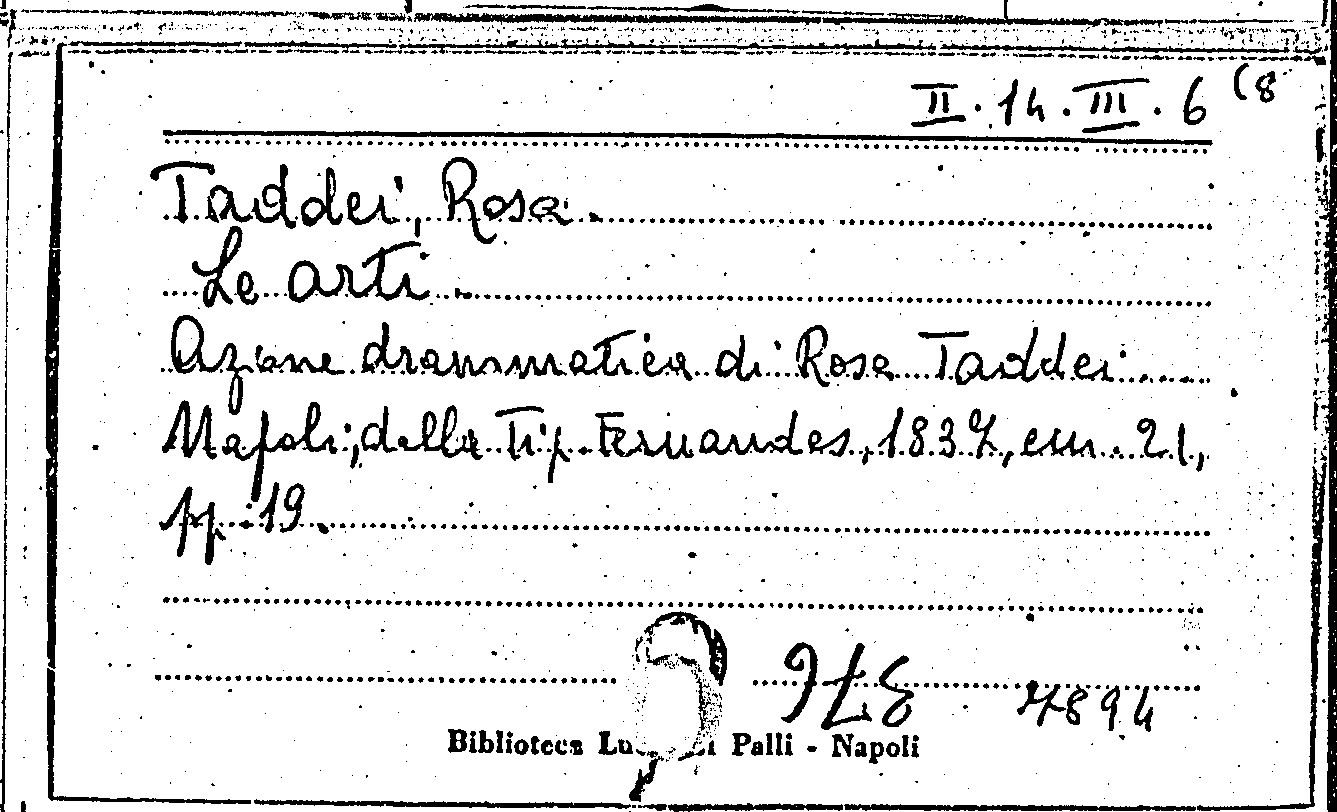 II. 14. III. 6 (8
Taddei, Rosa.
Le arti.
Azione drammatica di Rosa Taddei
Napoli, dalla Tip. Fernandes, 1837, cm. 21,
pp. 19.
7894
Biblioteca Palli - Napoli